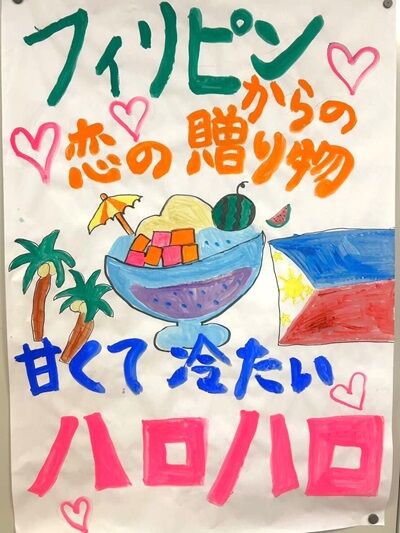 フィリピン
からの
恋の贈り物
甘くて冷たい
ハロハロ